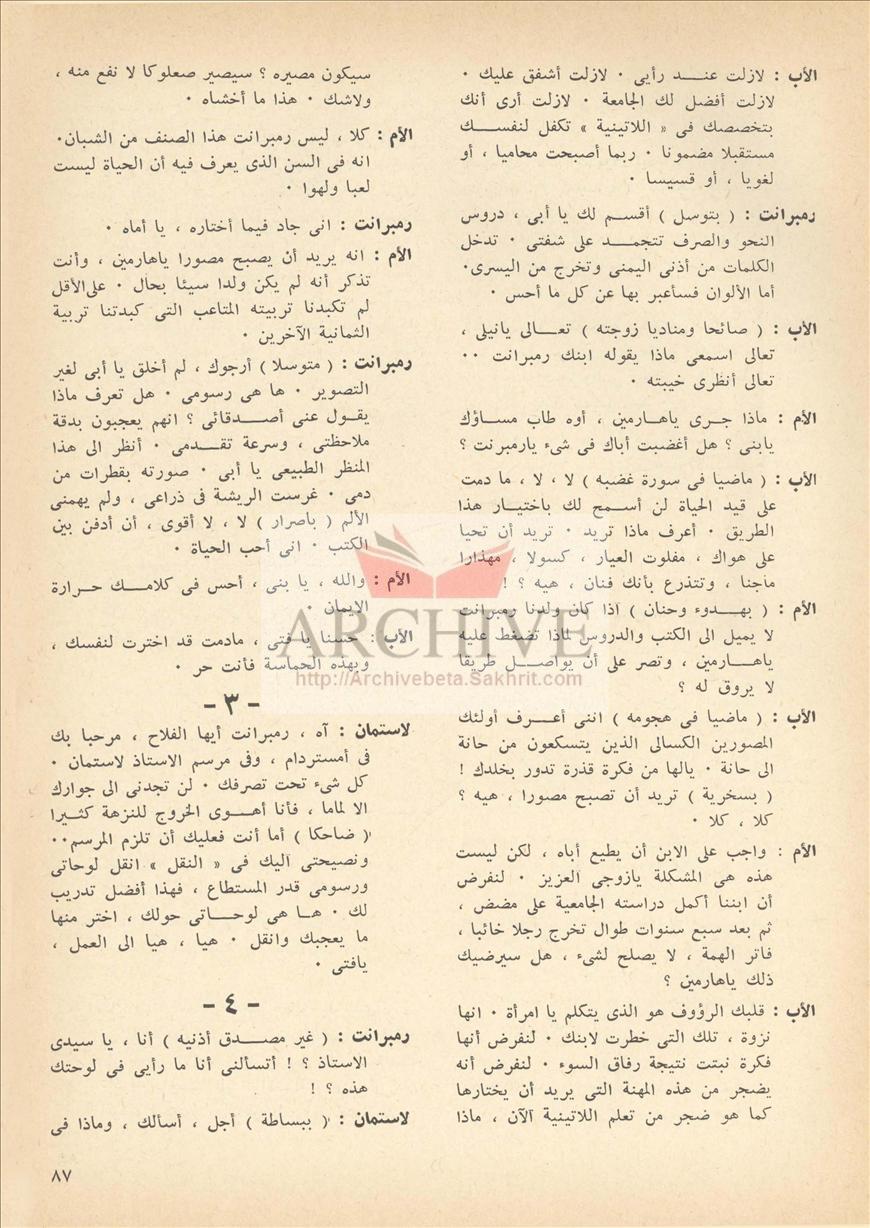 الأب : لازلت عنـــد رأيى ٠ لازلت أشفق عليك ٠
لازلت أفضل لك الجامعة ٠ لازلت أرى أنك
بتخصصك فى « اللاتينية » تكفل لنفســـك
مستقبلا مضمونا ٠ ربما أصبحت محاميا ، أو
لغويا ، أو قسيسا ٠
رمبرانت : ( بتوسل ) أقســم لك يا أبى ، دروس
النحو والصرف تتجمـــد على شفتى ٠ تدخل
الكلمات من أذنى اليمنى وتخرج من اليسرى٠
أما الألوان فسأعبر بها عن كل ما أحس ٠
الأب : ( صائحا ومناديا زوجته ) تعـــالى يانيلى ،
تعالى اسمعى ماذا يقوله ابنك رمبرانت ٠٠
تعالى أنظرى خيبته ٠
الأم : ماذا جــرى ياهـارمين ، أوه طاب مســاؤك
يابنى ؟ هل أغضبت أباك فى شىء يارمبرنت ؟
الأب : ( ماضيا فى سورة غضبه ) لا ، لا ، ما دمت
على قيد الحياة لن أســمح لك باختيــار هذا
الطريق ٠ أعرف ماذا تريد ٠ تريد أن تحيا
على هواك ، مفلوت العيار ، كسولا ، مهذارا
ماجنا ، وتتذرع بأنك فنان ، هيه ؟ !
الأم : ( بهــدوء وحنان ) اذا كان ولدنا رمبرانت
لا يميل الى الكتب والدروس لماذا تضغط عليه
ياهـــارمين ، وتصر على أن يواصــل طريقا
لا يروق له ؟
الأب : ( ماضيا فى هجومه ) اننى أعـــرف أولئك
المصورين الكسالى الذين يتسكعون من حانة
الى حانة ٠ يالها من فكرة قذرة تدور بخلدك !
( بسخرية ) تريد أن تصبح مصورا ، هيه ؟
كلا ، كلا ٠
الأم : واجب على الابن أن يطيع أباه ، لكن ليست
هذه هى المشكلة يازوجى العزيز ٠ لنفرض
أن ابننا أكمل دراسته الجامعية على مضض ،
ثم بعد سبع سنوات طوال تخرج رجلا خائبا ،
فاتر الهمة ، لا يصلح لشىء ، هل سيرضيك
ذلك ياهارمين ؟
الأب : قلبك الرؤوف هو الذى يتكلم يا امرأة ٠ انها
نزوة ، تلك التى خطرت لابنك ٠ لنفرض أنها
فكرة نبتت نتيجة رفاق السوء ٠ لنفرض أنه
يضجر من هذه المهنة التى يريد أن يختارها
كما هو ضجر من تعلم اللاتينية الآن ، ماذا
سيكون مصيره ؟ سيصير صعلوكا لا نفع منه ،
ولاشك ٠ هذا ما أخشاه ٠
الأم : كلا ، ليس رمبرانت هذا الصنف من الشبان٠
انه فى السن الذى يعرف فيه أن الحياة ليست
لعبا ولهوا ٠
رمبرانت : انى جاد فيما أختاره ، يا أماه ٠
الأم : انه يريد أن يصبح مصورا ياهارمين ، وأنت
تذكر أنه لم يكن ولدا سيئا بحال ٠ على الأقل
لم تكبدنا تربيته المتاعب التى كبدتنا تربية
الثمانية الآخرين ٠
رمبرانت : ( متوسلا ) أرجوك ، لم أخلق يا أبى لغير
التصوير ٠ ها هى رسومى ٠ هل تعرف ماذا
يقول عنى أصــدقائى ؟ انهم يعجبون بدقة
ملاحظتى ، وسرعة تقــدمى ٠ أنظر الى هذا
المنظر الطبيعى يا أبى ٠ صورته بقطرات من
دمى ٠ غرست الريشة فى ذراعى ، ولم يهمنى
الألم ( باصرار ) لا ، لا أقوى ، أن أدفن بين
الكتب ٠ انى أحب الحياة ٠
الأم : والله ، يا بنى ، أحس فى كلامــك حــرارة
الايمان ٠
الأب : حسنا يا فتى ، مادمت قد اخترت لنفسك ،
وبهذه الحماسة فأنت حر ٠
ARCHIVE
http://Archivebeta.Sakhrit.com
- ٣ -
لاستمان : آه ، رمبرانت أيها الفلاح ، مرحبا بك
فى أمستردام ، وفى مرسم الاستاذ لاستمان ٠
كل شىء تحت تصرفك ٠ لن تجدنى الى جوارك
الا لماما ، فأنا أهــوى الخروج للنزهة كثيرا
( ضاحكا ) أما أنت فعليك أن تلزم المرسم٠٠
ونصيحتى اليك فى « النقل » انقل لوحاتى
ورسومى قدر المستطاع ، فهذا أفضل تدريب
لك ٠ هــا هى لوحـــاتى حولك ، اختر منها
ما يعجبك وانقل ٠ هيا ، هيا الى العمل ،
يافتى ٠
- ٤ -
رمبرانت : ( غير مصــدق أذنيه ) أنا ، يا سيدى
الاستاذ ؟ ! أتسألنى أنا ما رأيى فى لوحتك
هذه ؟ !
لاستمان : ( ببساطة ) أجل ، أسألك ، وماذا فى
٨٧